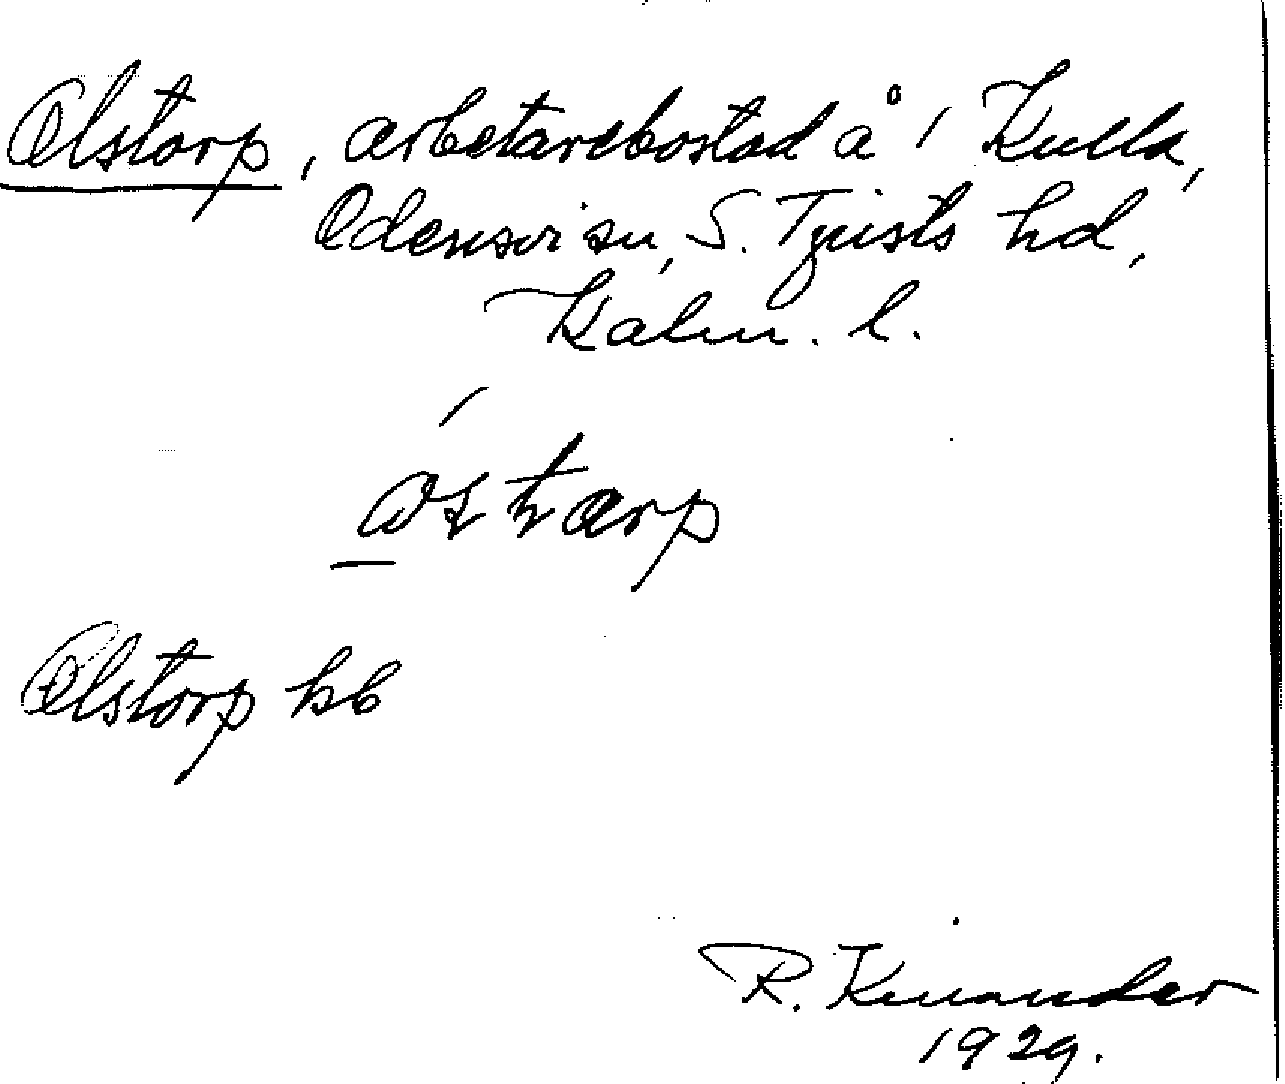 Olstorp, arbetarebostad å 1 Kulla,
Odensvi sn, S. Tjusts hd,
Kalm. l.
Olstorp kb
R. Kinander
1929.